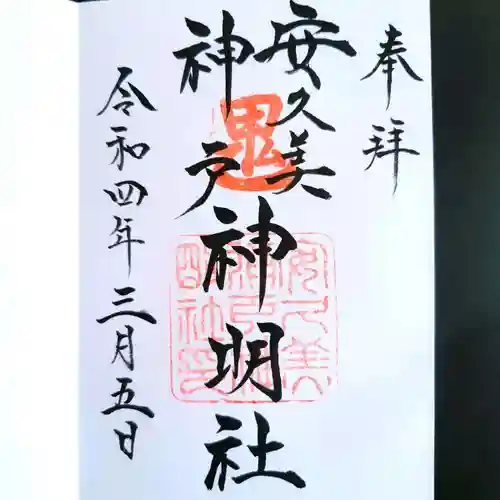 奉拝
安久美
神戸
神明社
令和四年三月五日